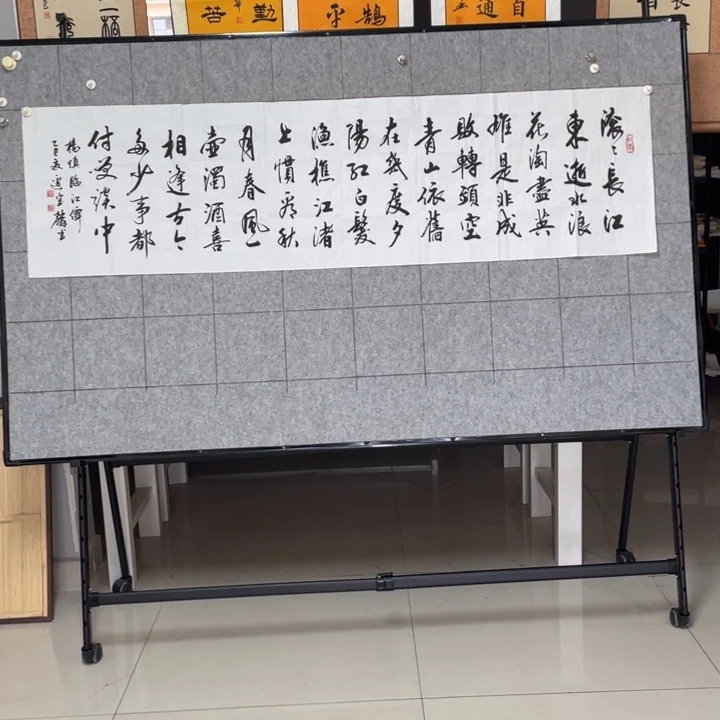 滚〻長江
東逝水浪
花淘盡英
雄是非成
敗轉頭空
青山依舊
在幾度夕
陽紅白髮
漁樵江渚
上慣看秋
月春風一
壺濁酒喜
相逢古今
多少事都
付笑談中
楊慎臨江仙
乙巳夏
勤
苦
鵠
平
自
通
長